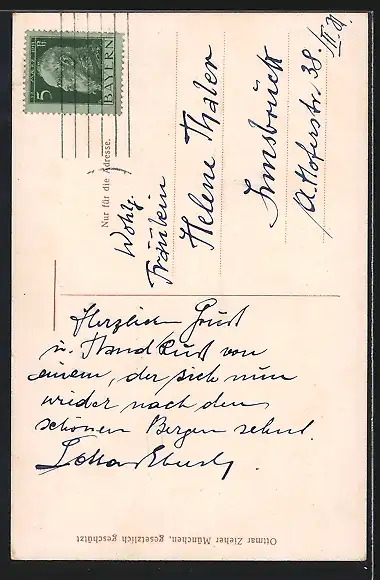 5 Pf
BAYERN
Nur für die Adresse.
Wohlg.
Fräulein
Helene Thaler
Innsbruck
A. Hoferstr. 38. III. St.
Herzlichen Gruß
u. Handkuß von
einem, der sich nun
wieder nach den
schönen Bergen sehnt.
Ottmar Zieher München, gesetzlich geschützt